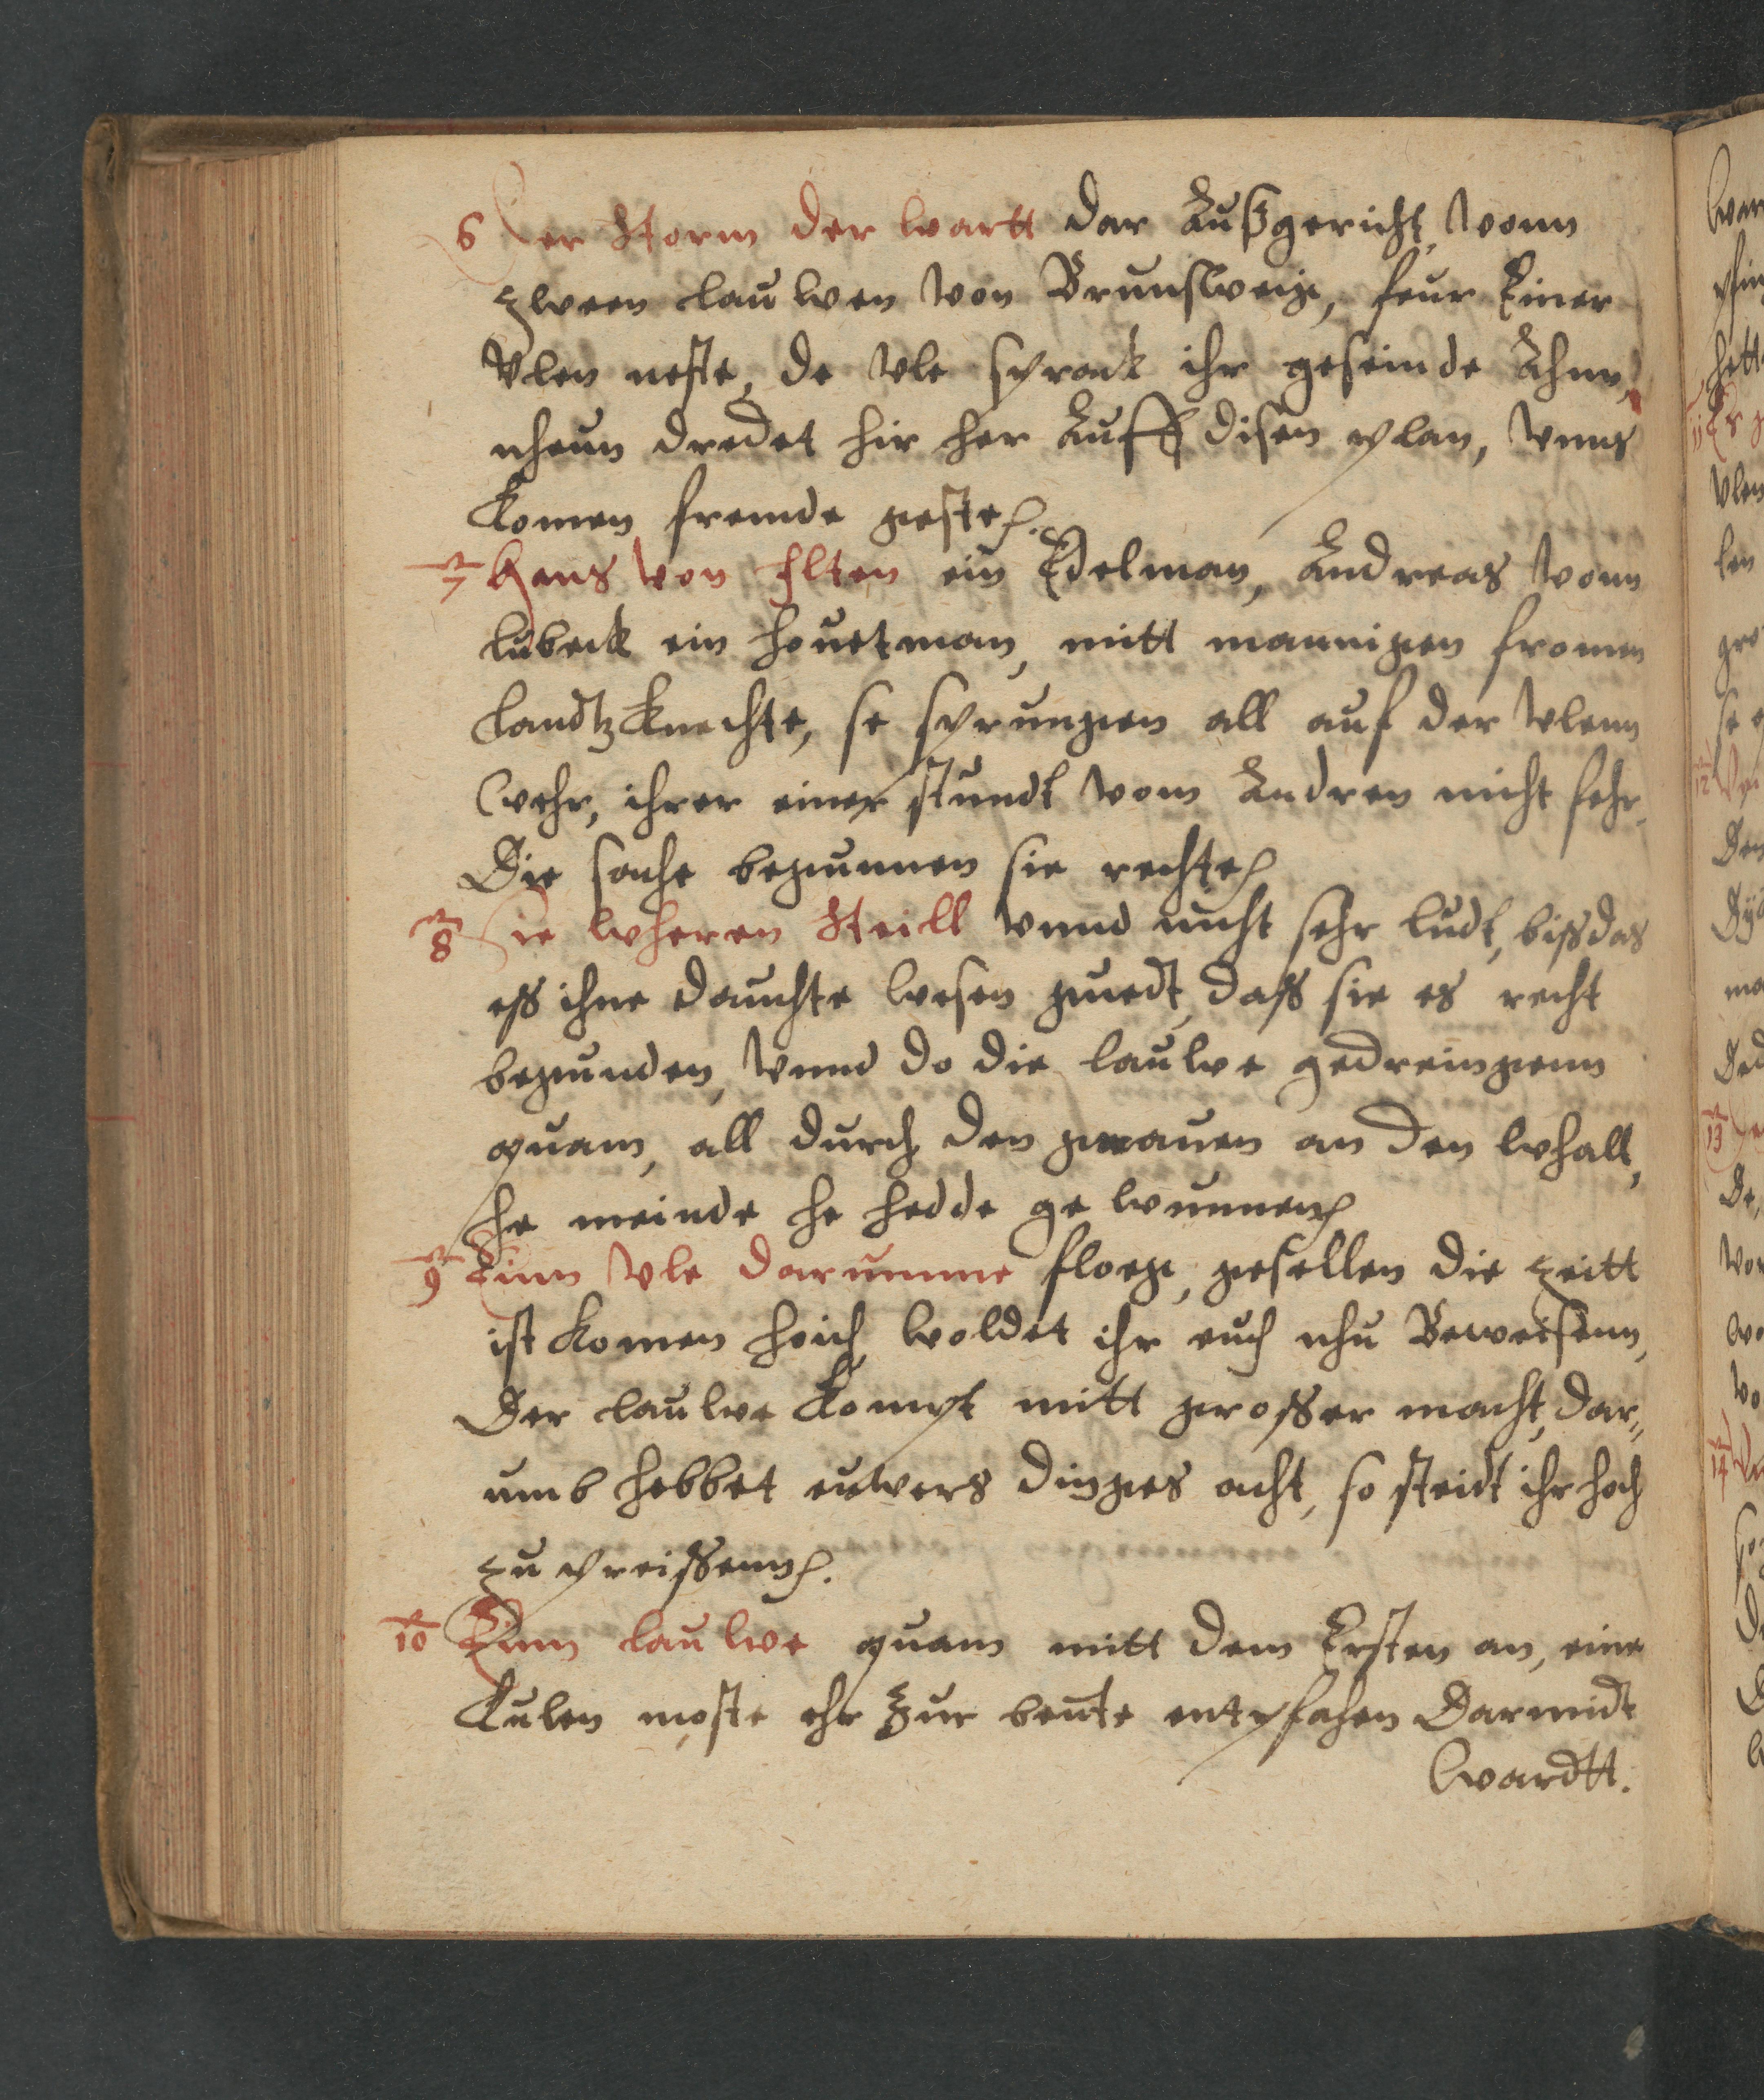 6 Der storm der wartt dar Außgericht, vonn
zween lauwen von Brunsweig, feur Einer
Vlen neste, de vle sprack ihr geseinde Ahnn,
nheun dredet hir her Auff disen plan, vnns
komen fremde geste.
7 Hans von Elten ein Edelman, Andreas vonn
lubeck ein houetman, mitt mannigen fromen
landtzknechte, se sprungen all auf der vlenn
wehr, ihrer einer stundt vom Andren nicht fehr.
Die sache begunnen sie rechte
8 Sie wheren steill vnnd nicht sehr ludt, biss das
ess ihne dauchte wesen guedt, dass sie es recht
begunden, vnnd do die lauwe gedreingenn
quam, all durch den grauen an den whall,
he meinde he hedde ge wunnen
9 Einn vle darumme floeg, gesellen die zeitt
ist komen hoich, woldet ihr euch nhu Beweisenn,
Der lauwe kompt mitt grosser macht, dar„
umb hebbet euwers dinges acht, so steidt ihr hoch
zu preissenn.
10 Einn lauwe quam mitt dem Ersten an, eine
kulen moste ehr zur beute entpfahen Darmidt
wardtt.